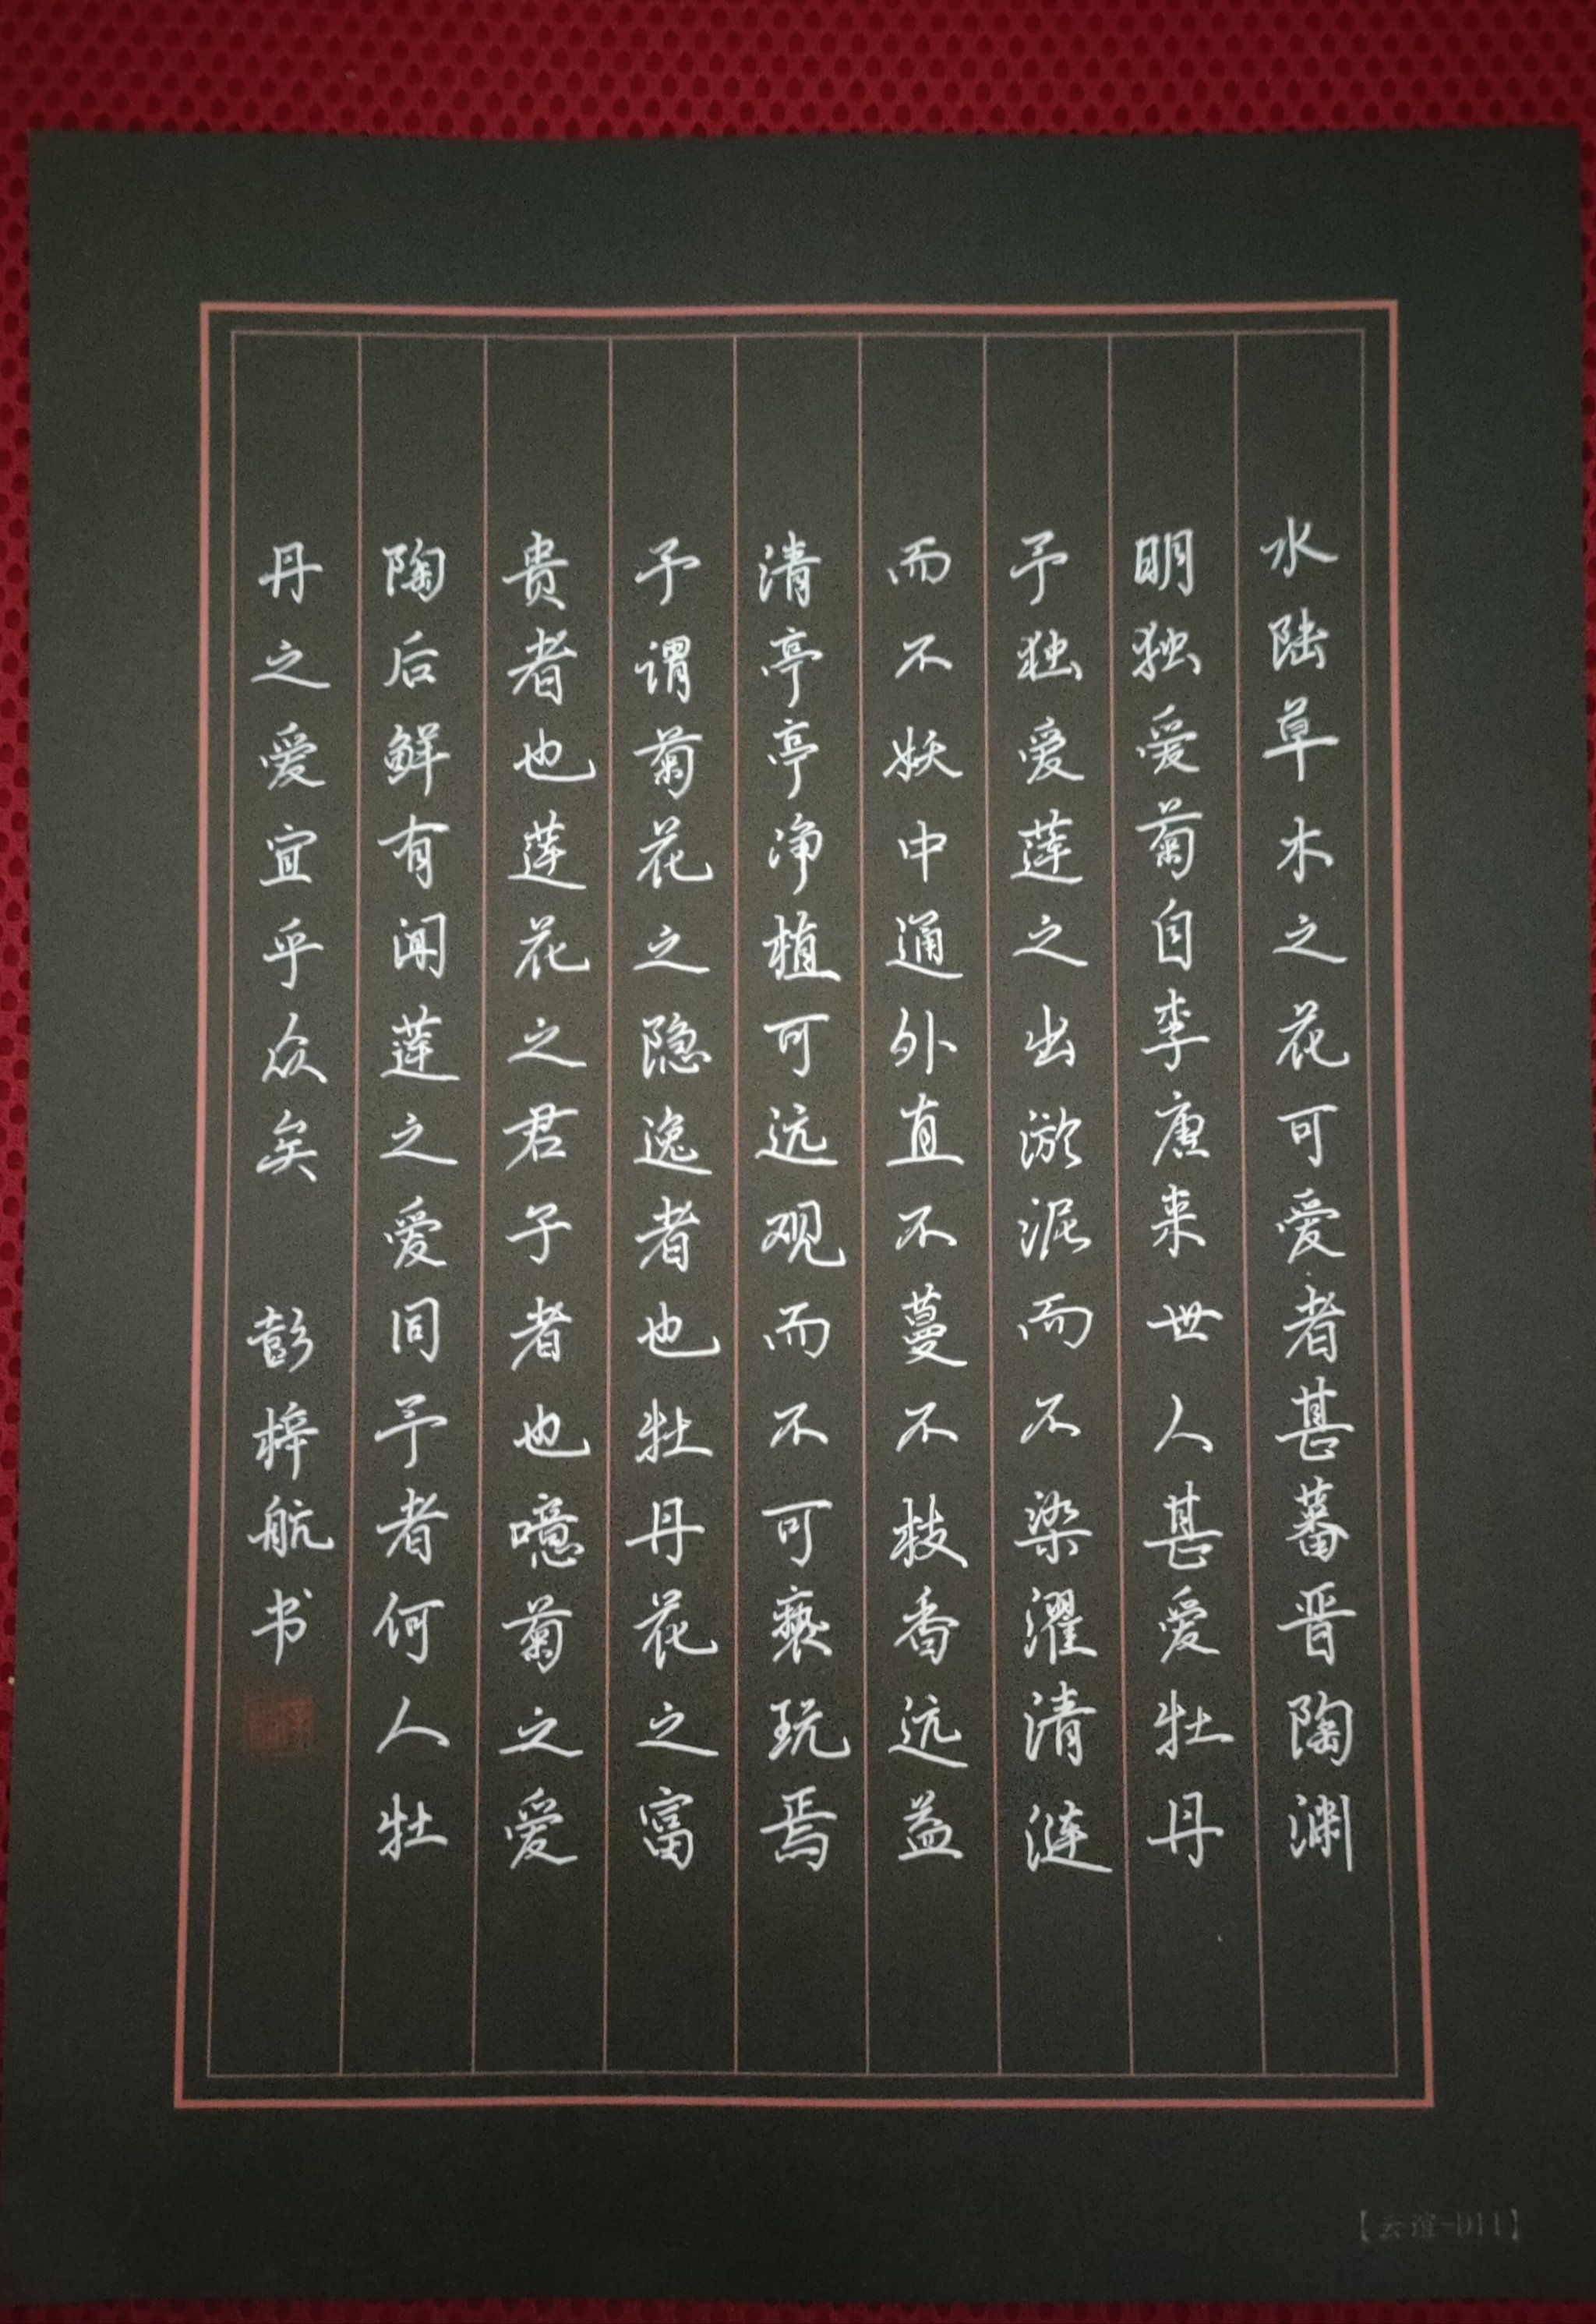 水陆草木之花可爱者甚蕃晋陶渊
明独爱菊自李唐来世人甚爱牡丹
予独爱莲之出淤泥而不染濯清涟
而不妖中通外直不蔓不枝香远益
清亭亭净植可远观而不可亵玩焉
予谓菊花之隐逸者也牡丹花之富
贵者也莲花之君子者也噫菊之爱
陶后鲜有闻莲之爱同予者何人牡
丹之爱宜乎众矣 彭梓航书
【云谊-D11】